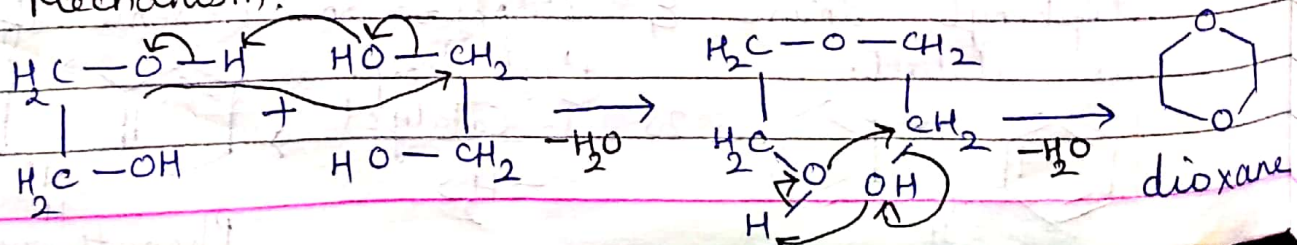 Mechanism:
H2C—O—H HO—CH2 H2C—O—CH2 O
+ —H2O —H2O
H2C—OH HO—CH2 H2C CH2 O
O OH dioxane
H